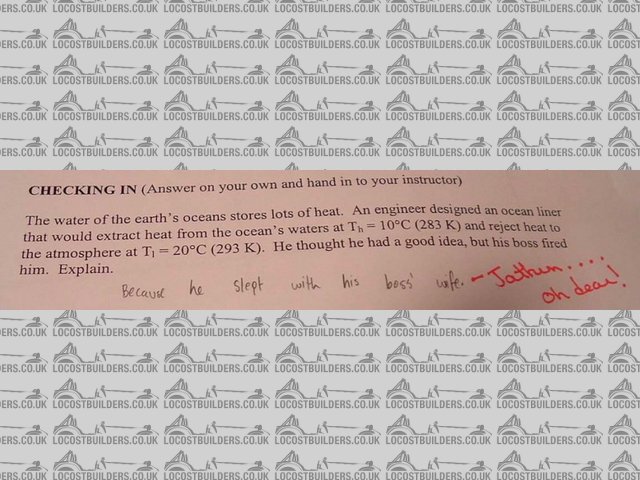 CHECKING IN (Answer on your own and hand in to your instructor)
The water of the earth's oceans stores lots of heat. An engineer designed an ocean liner
that would extract heat from the ocean's waters at Th = 10°C (283 K) and reject heat to
the atmosphere at Tl = 20°C (293 K). He thought he had a good idea, but his boss fired
him. Explain.
Because he slept with his boss' wife.
oh dear!
LOCOSTBUILDERS.CO.UK